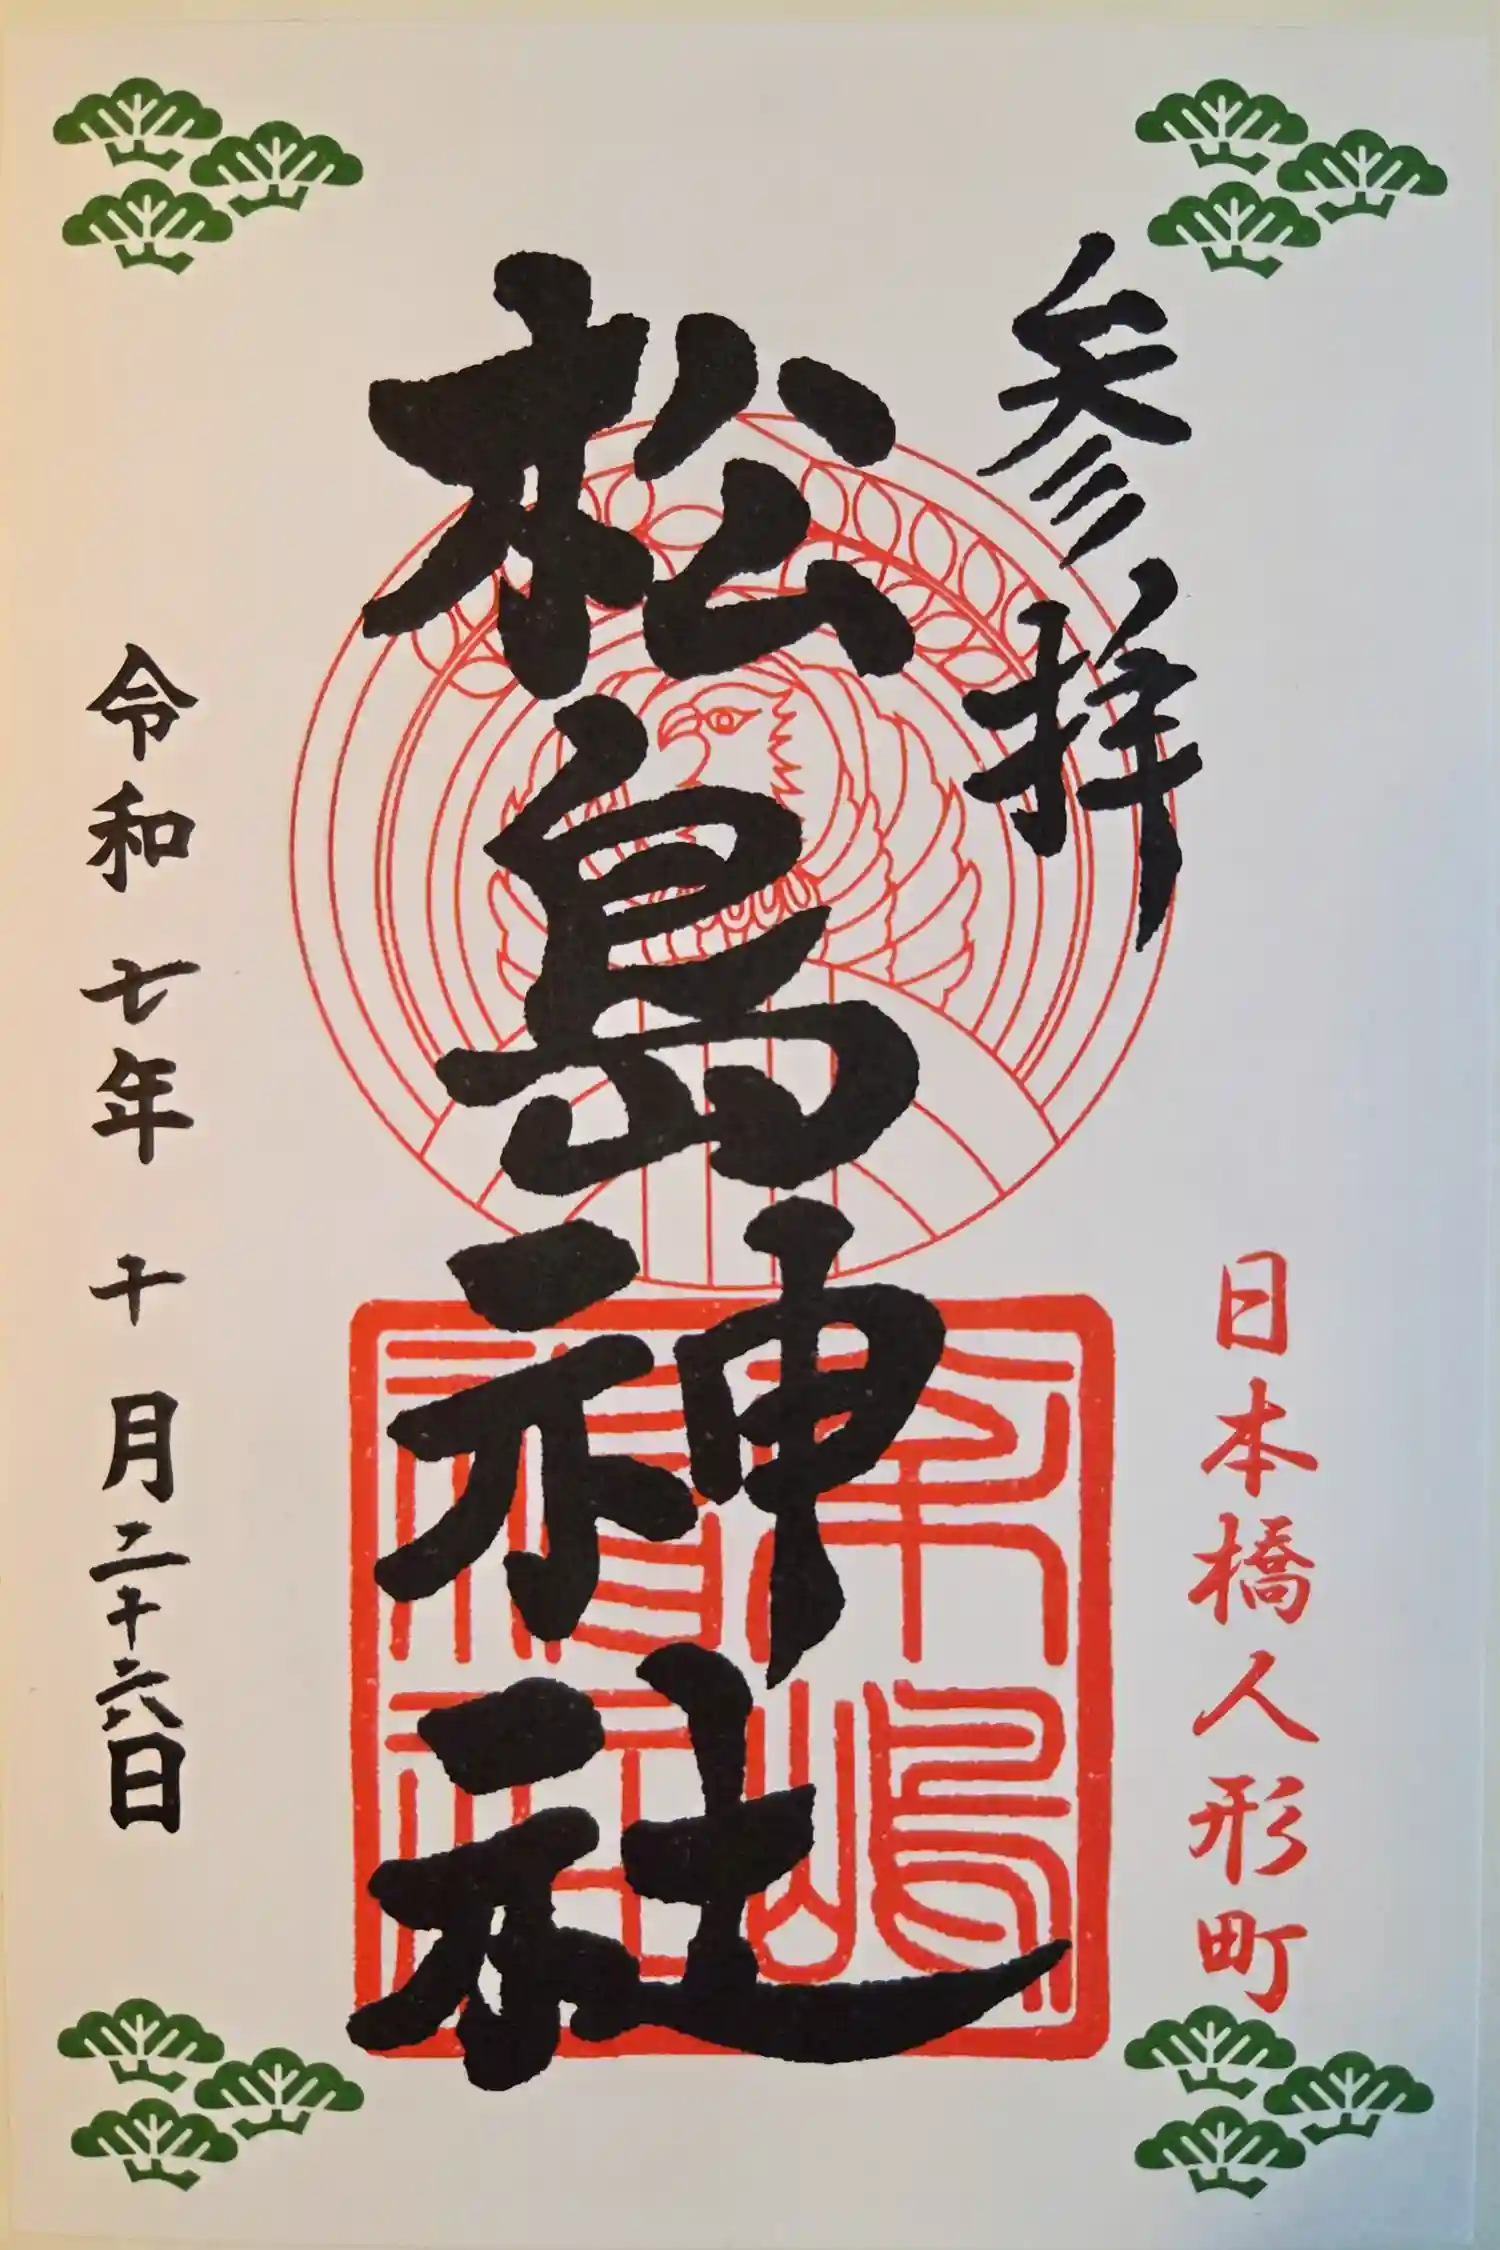 参拝
日本橋人形町
松島神社
松嶋神社
令和七年十月二十六日